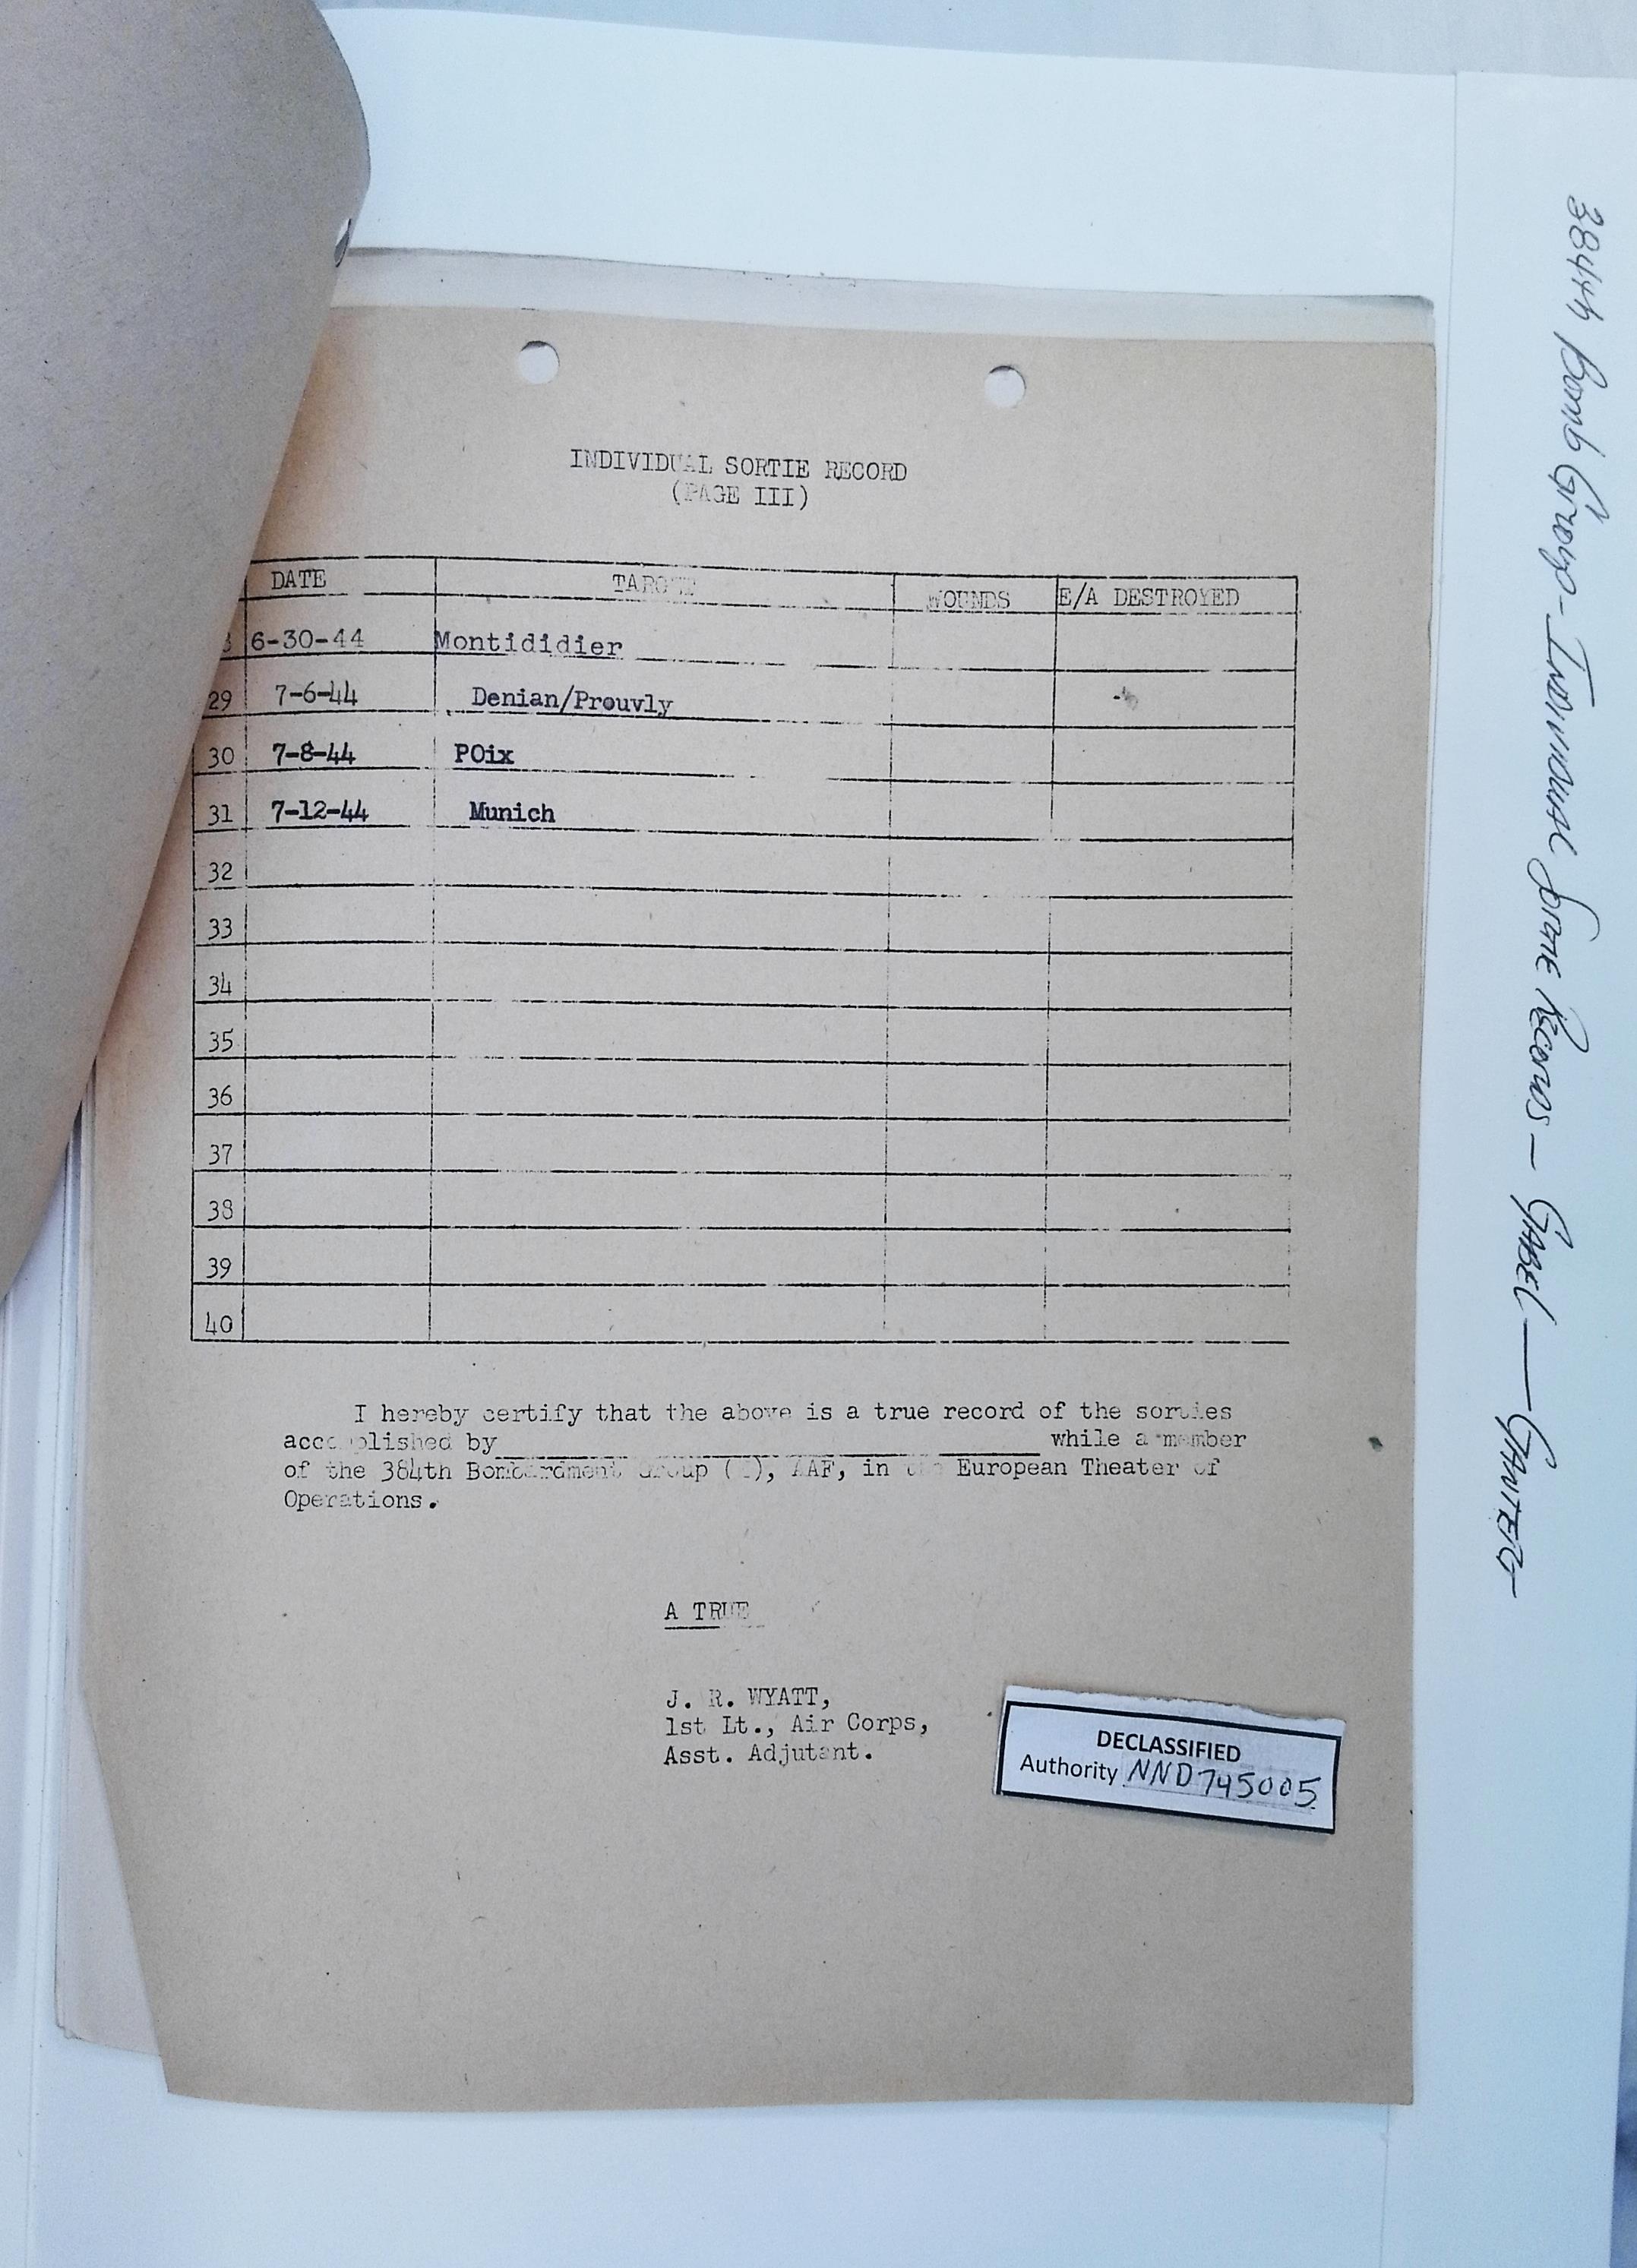 INDIVIDUAL SORTIE RECORD
(PAGE III)
DATE TARGET WOUNDS E/A DESTROYED
6-30-44 Montididier
29 7-6-44 Denian/Prouvly
30 7-8-44 POix
31 7-12-44 Munich
32
33
34
35
36
37
38
39
40
I hereby certify that the above is a true record of the sorties
accomplished by while a member
of the 384th Bombardment Group ( ), AAF, in the European Theater of
Operations.
A TRUE
J. R. WYATT,
1st Lt., Air Corps,
Asst. Adjutant.
DECLASSIFIED
Authority NND745005
384th Bomb Group - Individual Sortie Records - GABEL — GANTER